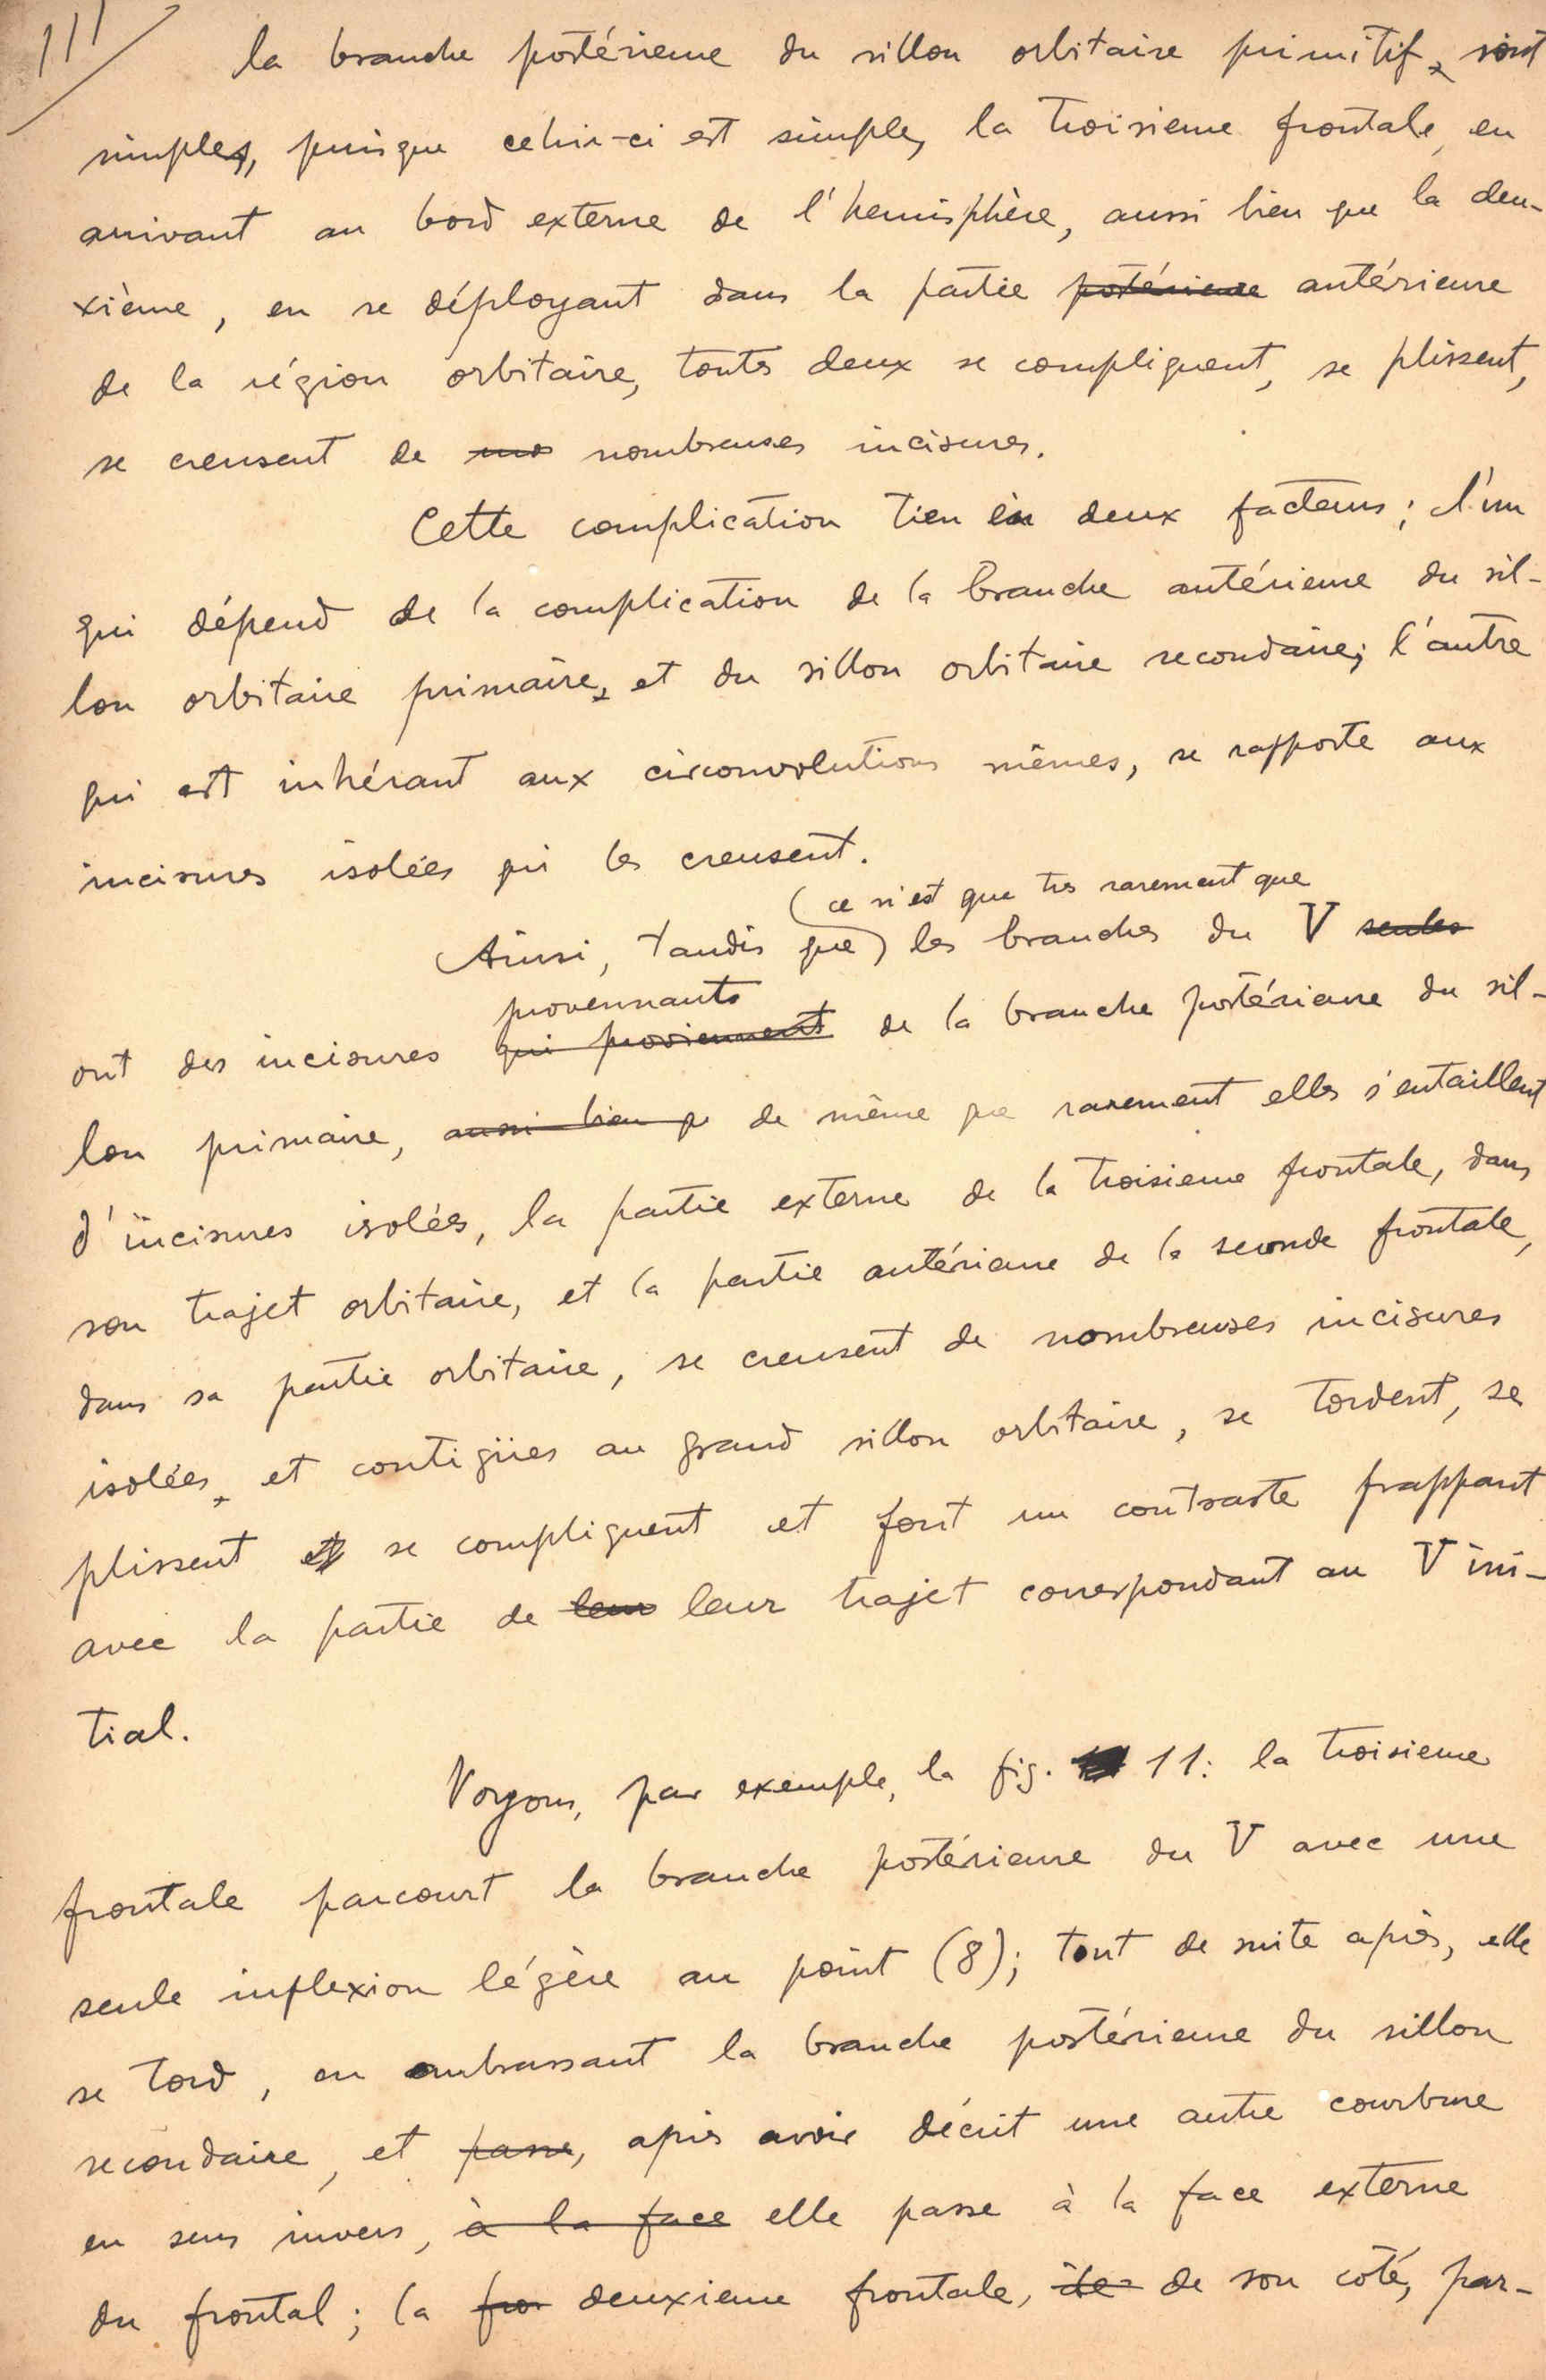 111
la branche postérieure du sillon orbitaire primitif, sont
simples, puisque celui-ci est simple, la troisieme frontale, en
arrivant au bord externe de l'hemisphère, aussi bien que la deu-
xième, en se déployant dans la partie postérieure antérieure
de la région orbitaire, touts deux se compliquent, se plissent,
se creusent de nombreuses incisures.
Cette complication tien à deux facteurs; l'un
qui dépend de la complication de la branche antérieure du sil-
lon orbitaire primaire, et du sillon orbitaire secondaire; l'autre
qui est inhérant aux circonvolutions mêmes, se rapporte aux
incisures isolées qui les creusent.
(ce n'est que tres rarement que
Ainsi, tandis que) les branches du V seules
provennants
ont des incisures qui proviennent de la branche postérieure du sil-
lon primaire, aussi bien q de même que rarement elles s'entaillent
d'incisures isolées, la partie externe de la troisieme frontale, dans
son trajet orbitaire, et la partie antérieure de la seconde frontale,
dans sa partie orbitaire, se creusent de nombreuses incisures
isolées, et contigües au grand sillon orbitaire, se tordent, se
plissent et se compliquent et font un contraste frappant
avec la partie de leur leur trajet correspondant au V ini-
tial.
Voyons, par exemple, la fig. 11: la troisieme
frontale parcourt la branche postérieure du V avec une
seule inflexion légère au point (8); tout de suite après, elle
se tord, en embrassant la branche postérieure du sillon
secondaire, et passe, après avoir décrit une autre courbure
en sens invers, à la face elle passe à la face externe
du frontal; la fron deuxieme frontale, de son côté, par-